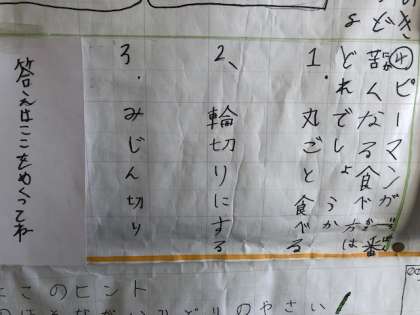 ④ピーマンが一番
苦くなる食べ方は
どれでしょうか
1.丸ごと食べる
2、輪切りにする
3.みじん切り
答えはここをめくってね
このヒント
みどりのやさい